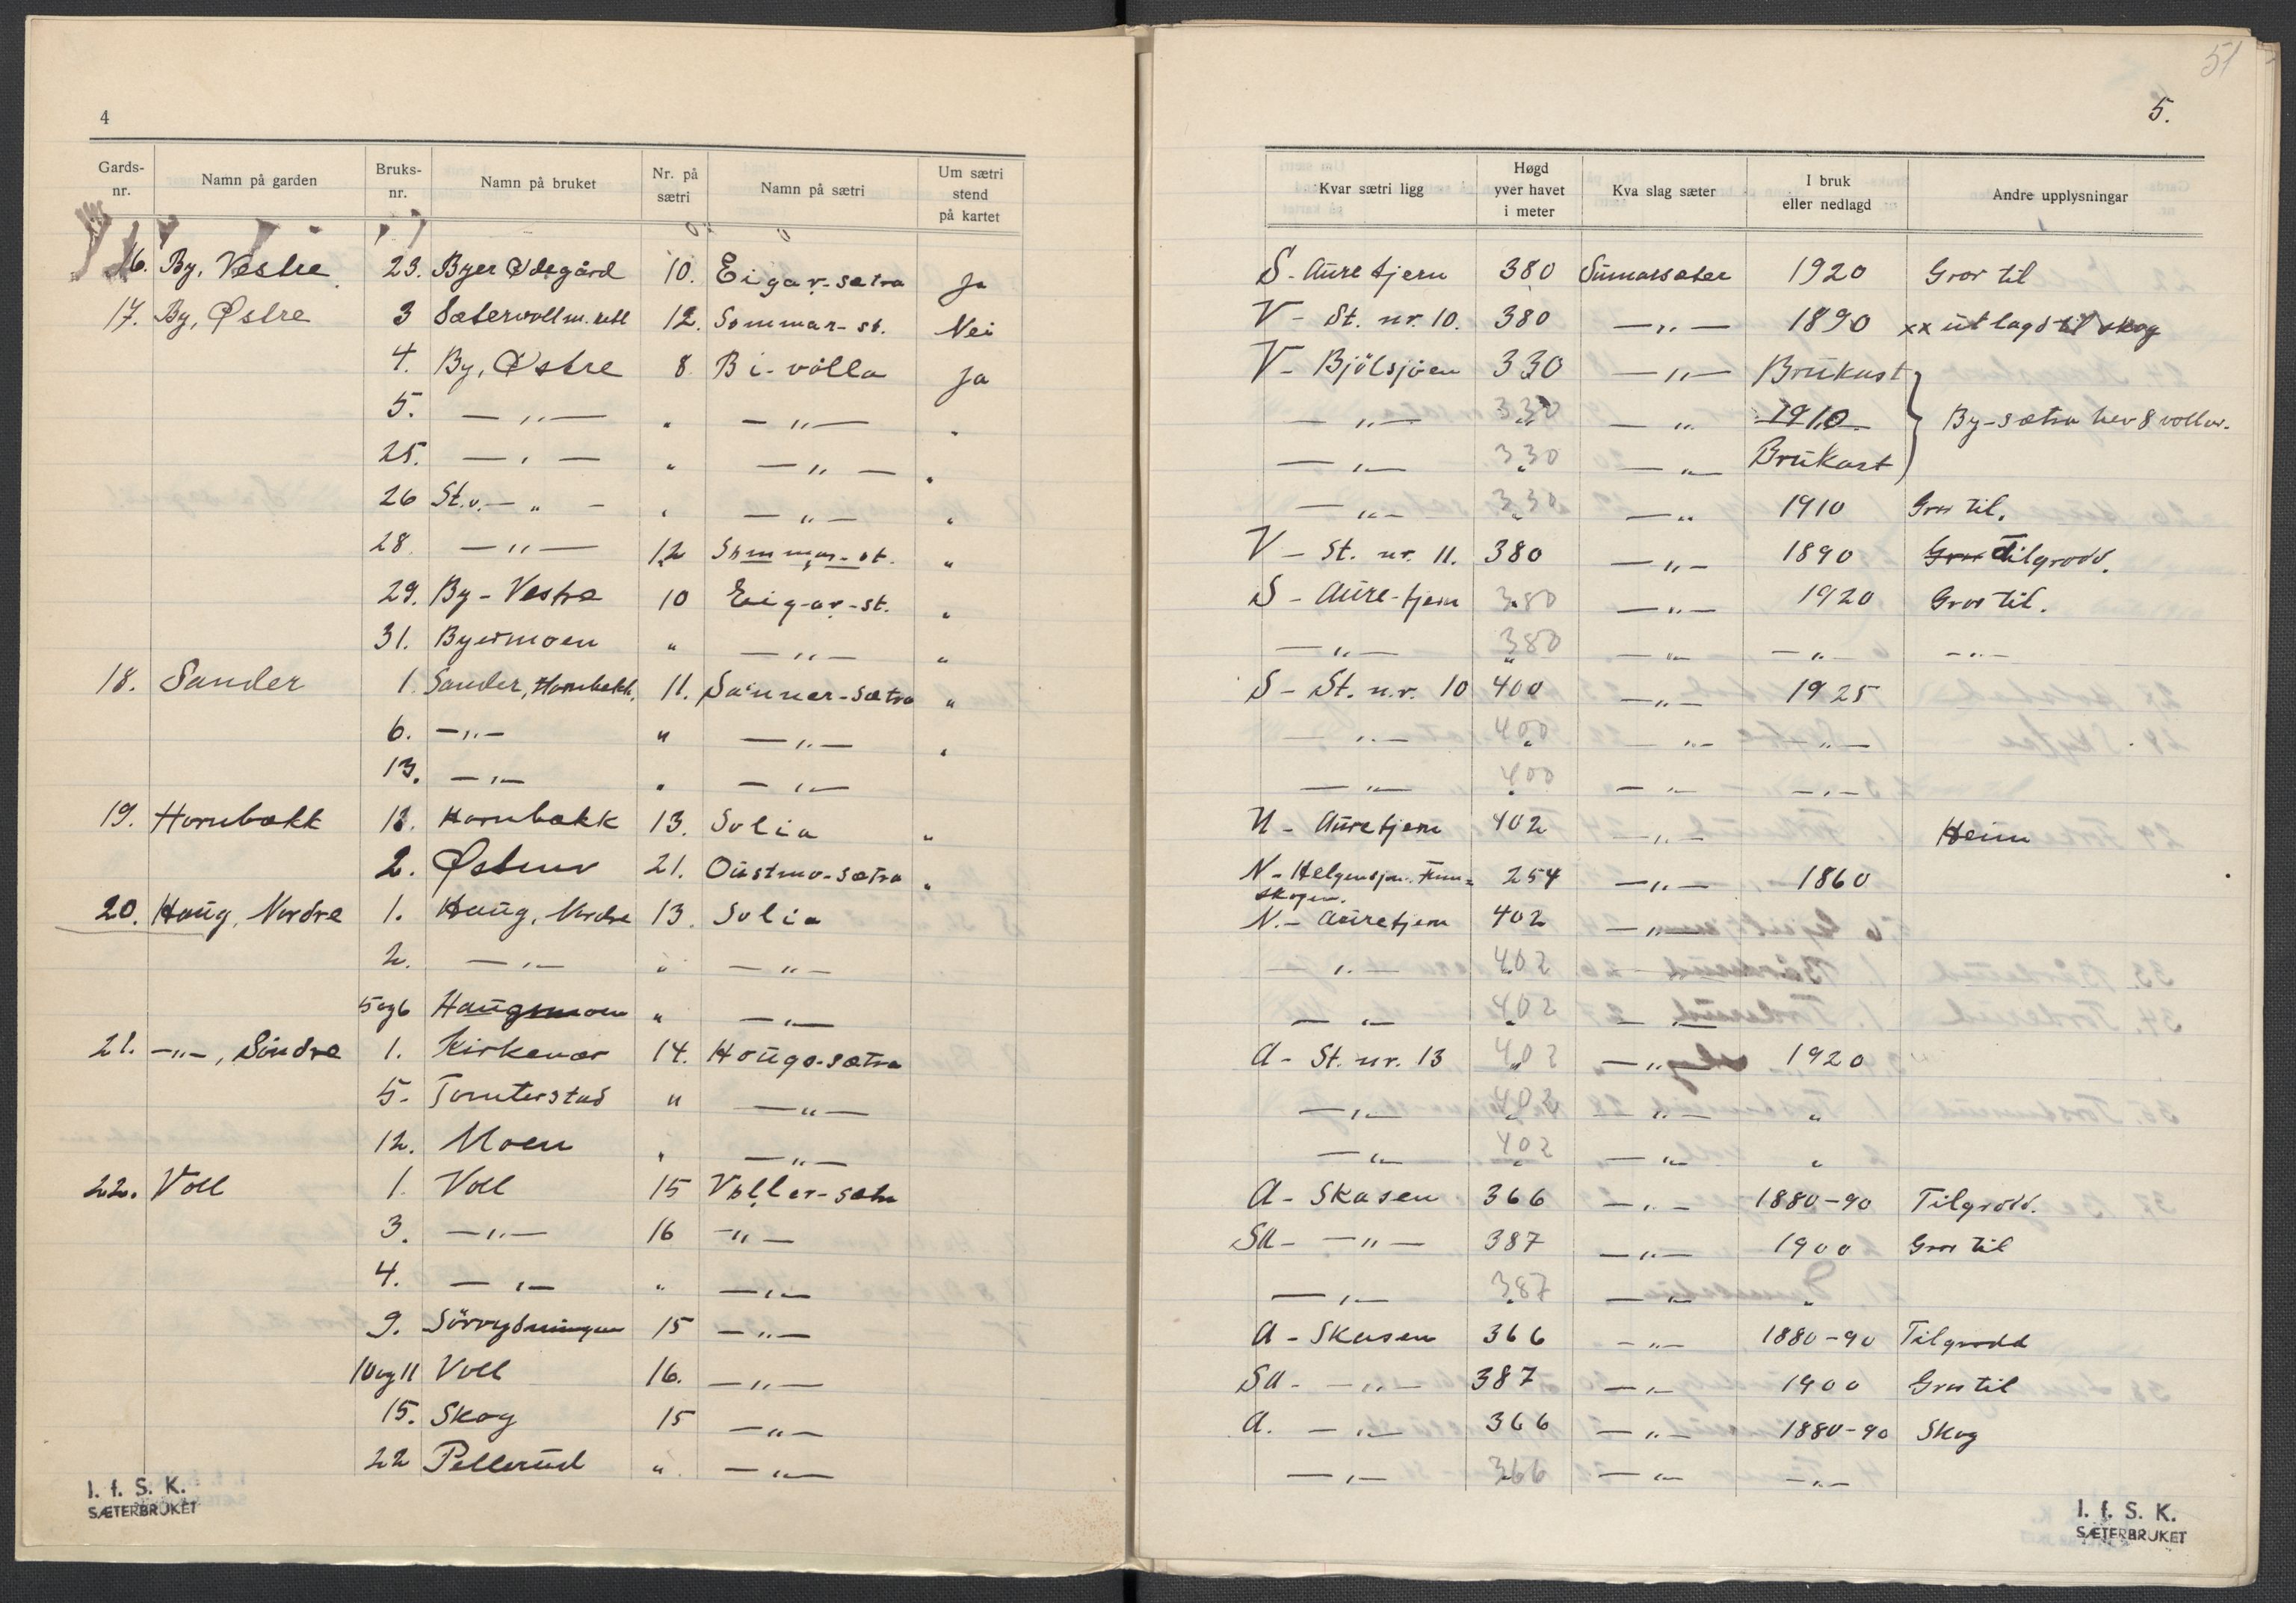 4
Gards-nr. Namn på garden Bruks-nr. Namn på bruket Nr. på sætri Namn på sætri Um sætri stend på kartet
16. By, Vestre 23. Byer Ødegård 10. Eigar-sætra Ja
17. By, Østre 3 Sætervoll m. 12. Sommar-st. Nei
4. By, Østre 8. Bi-vålla Ja
5. —„— „ —„— „
25. —„— „ —„— „
26 St.v. —„— „ —„— „
28. —„— 12 Sommar-st. „
29. By-Vestre 10 Eigar-st. „
31. Byermoen „ —„— „
18. Sander 1. Sander, Hornbekk. 11. Sa'nner-sætra „
6. —„— „ —„— „
13. —„— „ —„—
19. Hornbækk 12. Hornbækk 13. Solia „
2. Østmo 21. Oustmo-sætra „
20. Haug, Nordre 1. Haug, Nordre 13. Solia
2. —„— „ —„—
5 og 6 Haugsmoen „ —„—
21. —„—, Söndre 1. Kirkenær 14. Hougo-sætra
5. Tomterstad „ —„—
12. Moen „ —„—
22. Voll 1. Voll 15 Våller-sætra
3. —„— 16 —„—
4. —„— „ —„—
9. Sörrydningen 15 —„—
10 og 11 Voll 16. —„—
15. Skog 15 —„—
22 Pellerud „ —„—
I. f. S. K.
SÆTERBRUKET
51
5.
Kvar sætri ligg Høgd yver havet i meter Kva slag sæter I bruk eller nedlagd Andre upplysningar
S - Auretjern 380 Sumarsæter 1920 Gror til
V - St. nr. 10. 380 —„— 1890 xx utlagd til skog
V - Bjölsjöen 330 —„— Brukast
—„— 330 —„— 1910 By-sætra hev 8 vollar.
—„— 330 —„— Brukast
—„— 330 —„— 1910 Gror til.
V - St. nr. 11. 380 —„— 1890 Gror Tilgrodd.
S - Aure-tjern 380 —„— 1920 Gror til.
—„— 380 —„— —„— —„—
S - St. nr. 10 400 —„— 1925
—„— 400 —„— —„—
—„— 400 —„— —„—
N - Auretjern 402 —„— Heim
N - Helgensjøn. Finn=
skogen. 254 —„— 1860
N. - Auretjern 402 —„—
—„— 402
—„— 402 —„—
A - St. nr. 13 402 —„— 1920
—„— 402 —„— „
—„— 402 —„— „
A - Skasen 366 —„— 1880-90 Tilgrodd.
SA - —„— 387 —„— 1900 Gror til
—„— 387 —„— „
A - Skasen 366 —„— 1880-90 Tilgrodd
SA - —„— 387 —„— 1900 Gror til
A. —„— 366 —„— 1880-90 Skog
—„— 366 —„— —„—
I. f. S. K.
SÆTERBRUKET